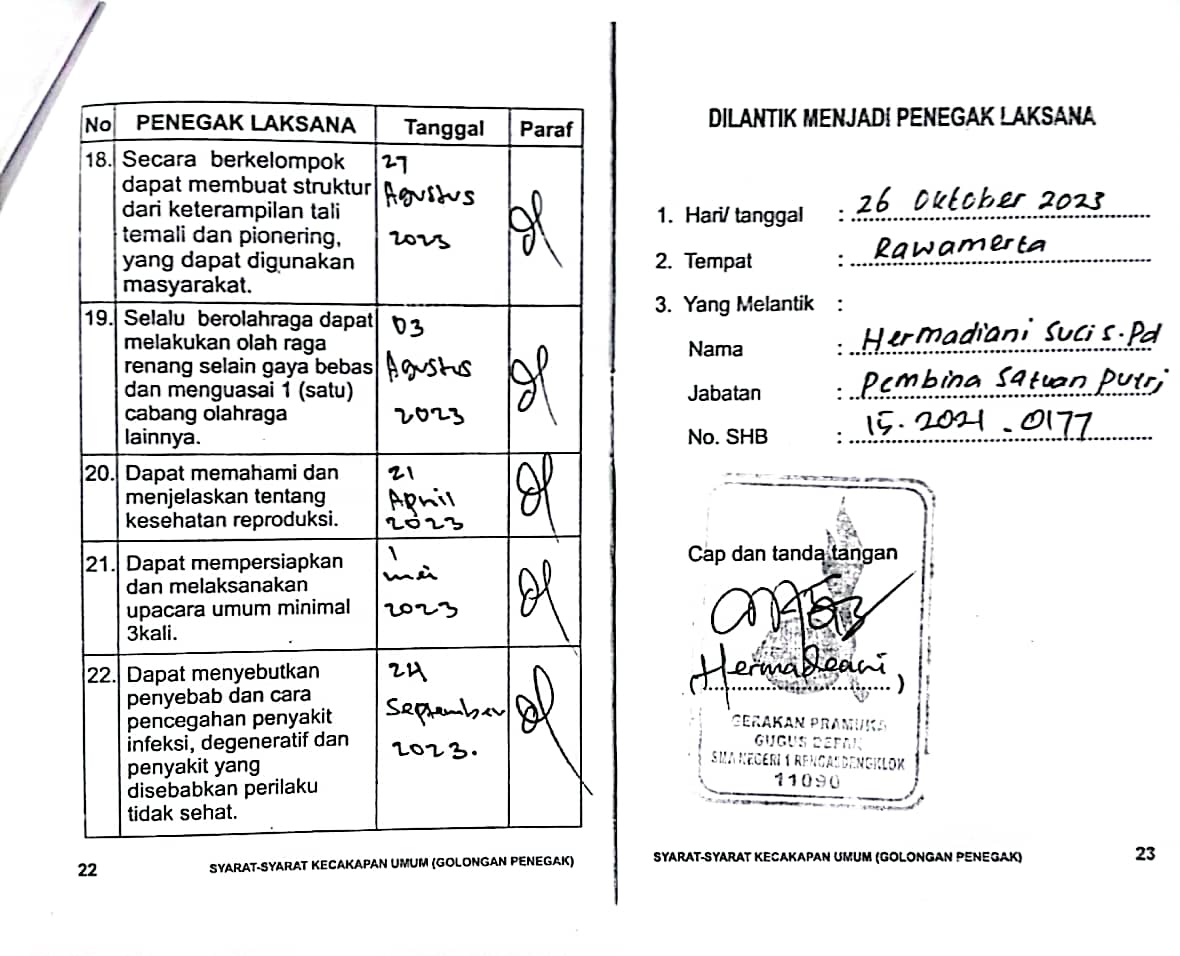 No PENEGAK LAKSANA Tanggal Paraf
18. Secara berkelompok 27
dapat membuat struktur Agustus
dari keterampilan tali
temali dan pionering, 2023
yang dapat digunakan
masyarakat.
19. Selalu berolahraga dapat 03
melakukan olah raga
renang selain gaya bebas Agustus
dan menguasai 1 (satu)
cabang olahraga 2023
lainnya.
20. Dapat memahami dan 21
menjelaskan tentang April
kesehatan reproduksi. 2023
21. Dapat mempersiapkan 1
dan melaksanakan mei
upacara umum minimal 2023
3kali.
22. Dapat menyebutkan 24
penyebab dan cara
pencegahan penyakit September
infeksi, degeneratif dan
penyakit yang 2023.
disebabkan perilaku
tidak sehat.
22 SYARAT-SYARAT KECAKAPAN UMUM (GOLONGAN PENEGAK)
DILANTIK MENJADI PENEGAK LAKSANA
1. Hari/ tanggal : 26 Oktober 2023
2. Tempat : Rawamerta
3. Yang Melantik :
Nama : Hermadiani Suci S.Pd
Jabatan : Pembina Satuan Putri
No. SHB : 15.2021.0177
Cap dan tanda tangan
(Hermadeani,)
GERAKAN PRAMUKA
GUGUS DEPAN
SMA NEGERI 1 RENGASDENGKLOK
11090
SYARAT-SYARAT KECAKAPAN UMUM (GOLONGAN PENEGAK) 23